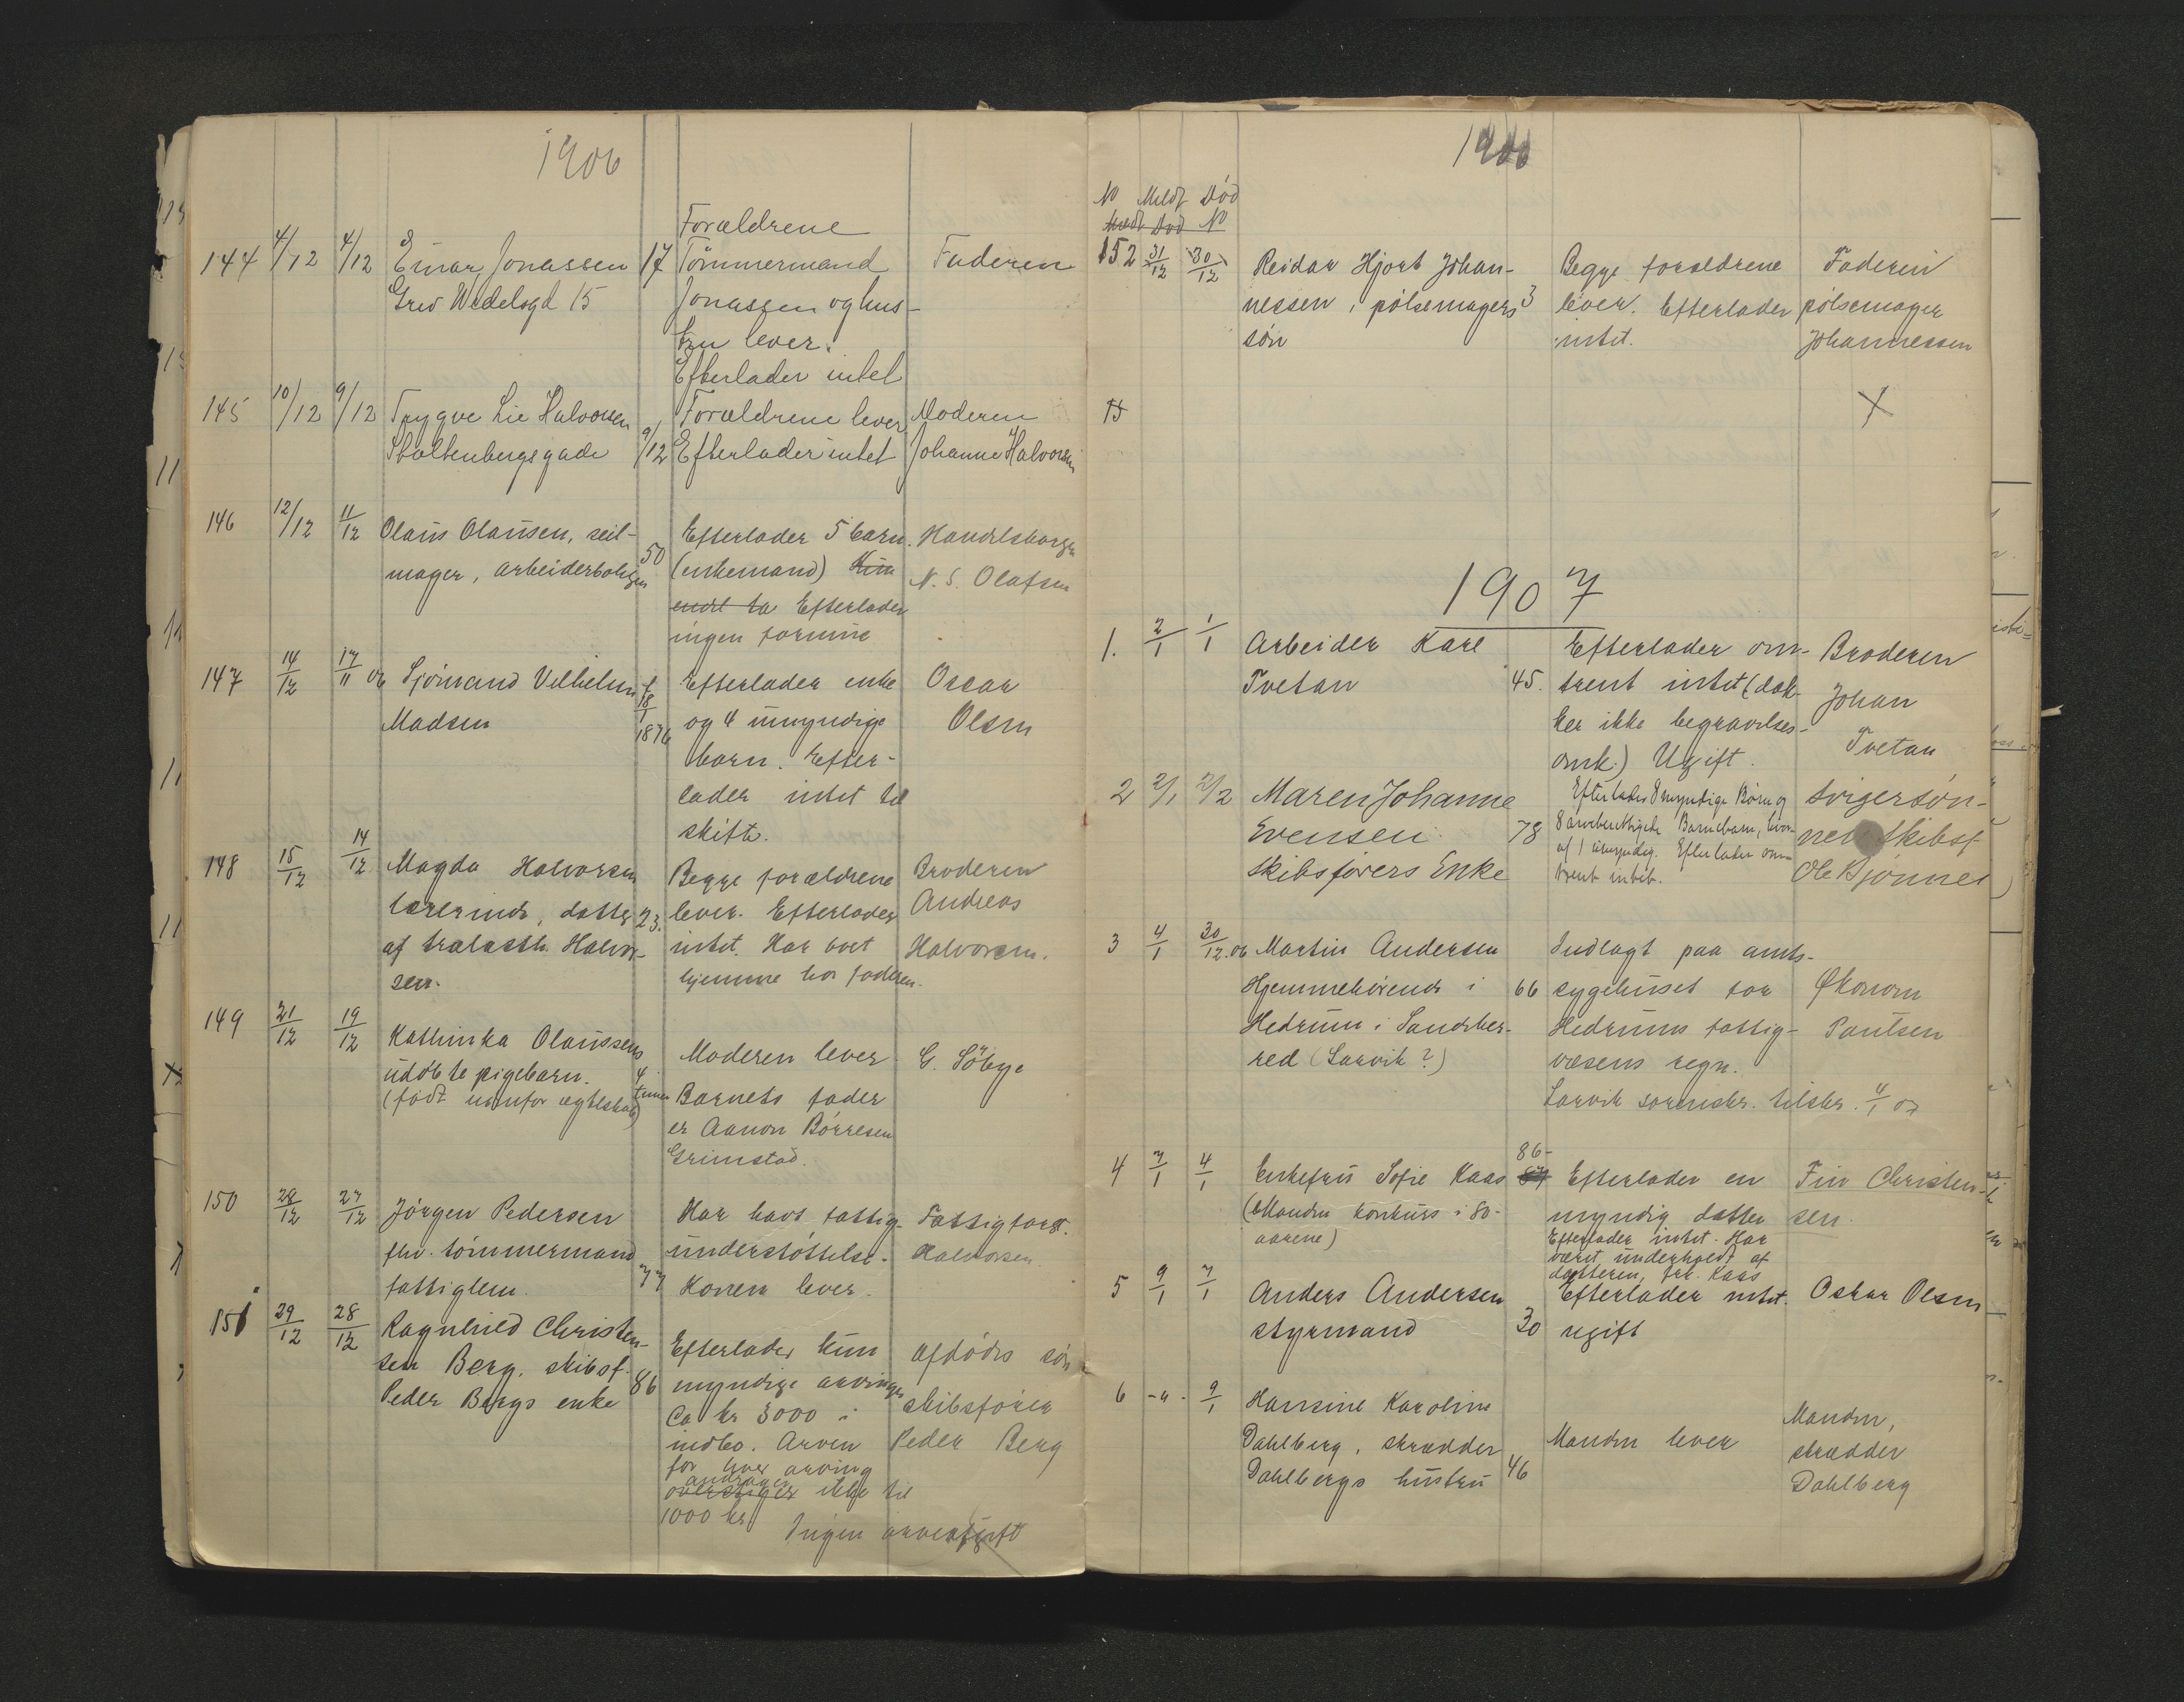 1906
144 4/12 4/12 Einar Jonassen 17 Forældrene Tömmermand Faderen
Grev Wedelsgd 15 Jonassen og hus-
tru lever.
Efterlader intet
145 10/12 9/12 Trygve Lie Halvorsen 9/12 Forældrene lever Moderen
Stoltenbergsgade Efterlader intet Johanne Halvorsen
146 12/12 11/12 Olaus Olausen, seil- 50 Efterlader 5 barn. Handelsborger
mager, arbeiderboligen (enkemand) Kun N. S. Olafsen
endel to Efterlader
ingen formue
147 14/12 17/11 06 Sjömand Vilhelm f. 18/1 1876 Efterlader enke Oscar
Madsen og 4 umyndige Olsen
barn. Efter-
lader intet til
skifte.
148 15/12 14/12 Magda Halvorsen Begge forældrene Broderen
lærerinde, datter 23. lever. Efterlader Andreas
af trælasth. Halvor- intet. Har boet Halvorsen.
sen. hjemme hos faderen.
149 21/12 19/12 Kathinka Olaussens 4 timer Moderen lever G. Söbye
udöbte pigebarn. Barnets fader
(født udenfor ægteskab) er Aanon Börresen
Grimstad.
150 28/12 27/12 Jörgen Pedersen Har havt fattig- Fattigforst.
fhv. tömmermand understöttelse. Halvorsen.
fattiglem. 77 Konen lever.
151 29/12 28/12 Ragnhild Christen- Efterlader kun afdödes sön
sen Berg, skibsf. 86 myndige arvinger skibsförer
Peder Bergs enke Ca kr 3000 i Peder Berg
indbo. Arven
for hver arving
andrager
overstiger ikke til
1000 kr
Ingen arveafgift
1906
No Meldt Död
Meldt Död No
152 31/12 30/12 Reidar Hjort Johan- Begge forældrene Faderen
nessen, pölsemagers 3 lever. Efterlader pölsemager
sön intet. Johannessen
15 X
1907
1. 2/1 1/1 Arbeider Karl Efterlader om- Broderen
Tvetan 45. trent intet (dæk- Johan
ker ikke begravelses- Tvetan
omk.) Ugift.
2 2/1 2/2 Maren Johanne Efterlader 8 myndige Børn og Svigersøn-
Evensen 78 8 arveberettigede Barnebarn, hvor- nen Skibsf
Skibsførers Enke af 1 umyndig. Efterlader om- Ole Bjönnes
trent intet.
3 4/1 30/12.06 Martin Andersen Indlagt paa amts-
Hjemmehörende i 66 sygehuset for Økonom
Hedrum i Sandeher- Hedrums fattig- Paulsen
red (Larvik?) væsens regn.
Larvik sorenskr. tilskr. 4/1 07
4 7/1 4/1 Enkefru Sofie Kaas 86- 87 Efterlader en Fin Christen-
(Manden konkurs i 80- myndig datter sen.
aarene) Efterlader intet. Har
været underholdt af
datteren, frk. Kaas
5 9/1 7/1 Anders Andersen Efterlader intet. Oskar Olsen
styrmand 30 ugift
6 -"- 9/1 Hansine Karoline Manden,
Dahlberg, skrædder Manden lever skrædder
Dahlbergs hustru 46 Dahlberg